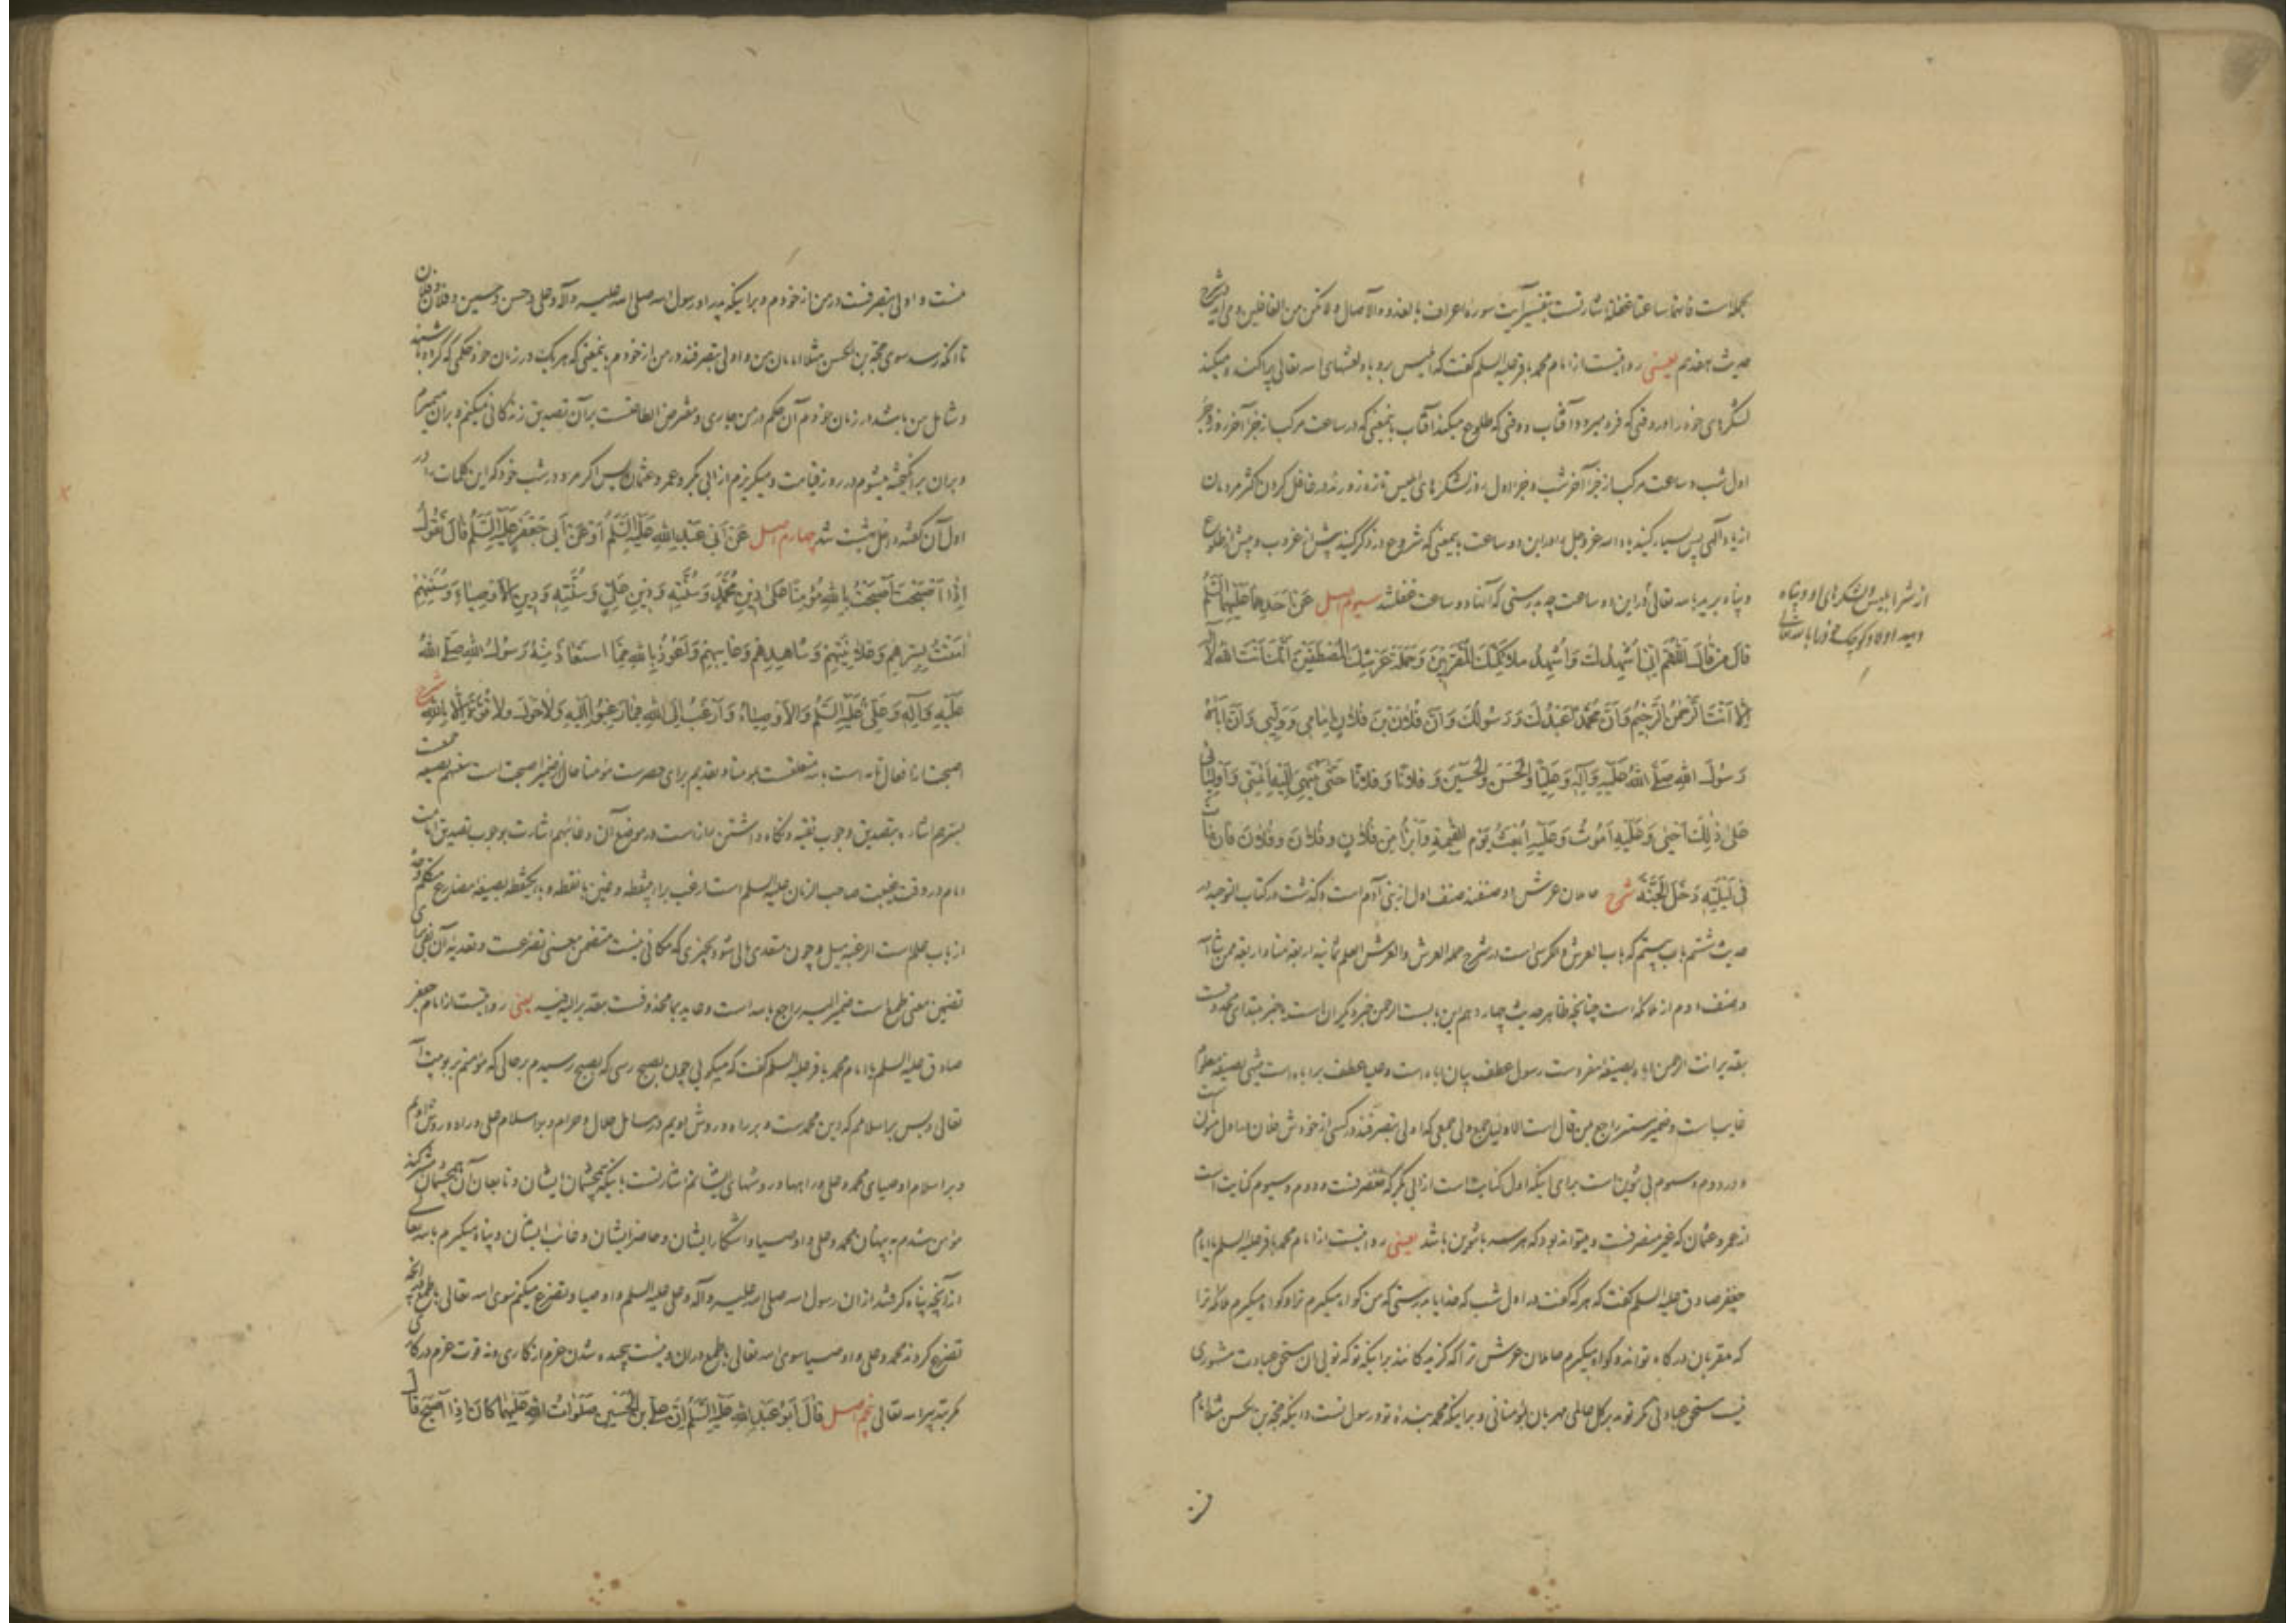 جمله است فانهما ساعتا غفلة اشارتست بتفسیر آیت سوره اعراف بالغدو والآصال ولا تکن من الغافلین و می آید در شرح
حدیث هفدهم یعنی روایتست از امام محمد باقر علیه السلم گفت که ابلیس برو باد لعنتهای الله تعالی پراکنده میکند
لشکرهای خود را در وقتی که فرو میرود آفتاب و وقتی که طلوع میکند آفتاب بمعنی که در ساعت مرکب از جزء آخر روز و جزء
اول شب و ساعت مرکب از جزء آخر شب و جزء اول روز لشکرهای ابلیس تازه زور ند در غافل کردن اکثر مردمان
از یاد الهی پس بسیار کنید یاد الله عزوجل را در این دو ساعت بمعنی که شروع در ذکر کنید پیش از غروب و پیش از طلوع
و پناه برید بالله تعالی در این دو ساعت چه بدرستی که آنها دو ساعت غفلتند سیوم اصل عَنْ اَحَدِهِمَا عَلَیْهِمَا السَّلَمُ
قَالَ مَنْ قَالَ اَللّٰهُمَّ اِنِّی اُشْهِدُكَ وَاُشْهِدُ مَلَائِكَتَكَ الْمُقَرَّبِینَ وَحَمَلَةَ عَرْشِكَ الْمُصْطَفَیْنَ اَنَّكَ اَنْتَ اللّٰهُ لَا اِلٰهَ
اِلَّا اَنْتَ الرَّحْمٰنُ الرَّحِیمُ وَاَنَّ مُحَمَّدًا عَبْدُكَ وَرَسُولُكَ وَاَنَّ فُلَانَ بْنَ فُلَانٍ اِمَامِی وَوَلِیِّی وَاَنَّ اَبَاهُ
رَسُولَ اللّٰهِ صَلَّی اللّٰهُ عَلَیْهِ وَآلِهِ وَعَلِیًّا وَالْحَسَنَ وَالْحُسَیْنَ وَفُلَانًا وَفُلَانًا حَتَّی یَنْتَهِیَ اِلَیْهِ اَئِمَّتِی وَاَوْلِیَائِی
عَلٰی ذٰلِكَ اَحْیٰی وَعَلَیْهِ اَمُوتُ وَعَلَیْهِ اُبْعَثُ یَوْمَ الْقِیٰمَةِ وَاَبْرَأُ مِنْ فُلَانٍ وَفُلَانَ وَفُلَانَ فَاِنْ مَاتَ
فِی لَیْلَتِهِ دَخَلَ الْجَنَّةَ شرح حاملان عرش دو صنفند صنف اول از بنی آدم است و گذشت در کتاب التوحید در
حدیث ششم باب بیستم که باب العرش والکرسی است در شرح حملة العرش والعرش العلم ثمانیة اربعة منا و اربعة ممن شاء الله
و صنف دوم از ملائکه است چنانچه ظاهر حدیث چهاردهم این بابست الرحمن خبر دیگر ان است یا خبر مبتدای محذوفست
بتقدیر انت الرحمن اباه بصیغهٔ مفردست رسول عطف بیان اباه است و علیا عطف بر اباه است ینتهی بصیغهٔ معلوم
غایب است و ضمیر مستتر راجع بمن قال است الاولیاء جمع ولی جمعی که اولی بتصرفند در کسی از خودش فلان اول بتنوین است
و در دوم و سیوم بی تنوین است برای اینکه اول کنایت است از ابی بکر که منصرفست و دوم و سیوم کنایت است
از عمر و عثمان که غیر منصرفست و میتواند بود که هر سه با تنوین باشد یعنی روایتست از امام محمد باقر علیه السلم یا امام
جعفر صادق علیه السلم گفت که هر که گفت در اول شب که خدایا بدرستی که من گواه میگیرم ترا و گواه میگیرم ملائکه ترا
که مقربان درگاه تواند و گواه میگیرم حاملان عرش ترا که گزیدگانند بر اینکه تو که توئی آن مستحق عبادت مشهوری
نیست مستحق عبادتی مگر تو بر کل عالمی مهربان بمؤمنانی و بر اینکه محمد بندهٔ تو و رسول تست و اینکه حجة بن الحسن مثلا امام
از شر ابلیس و لشکرهای او و پناه
دهید اولاد کوچک خود را بالله تعالی
منست و اولی بتصرفست در من از خودم و بر اینکه پدر او رسول الله صلی الله علیه وآله و علی و حسن و حسین و فلان و فلان
تا آنکه رسد سوی حجة بن الحسن مثلا امامان من و اولی بتصرفند در من از خودم بمعنی که هر یک در زمان خود حکمی که کرده باشند
و شامل من باشد در زمان خودم آن حکم در من جاری و مفترض الطاعتست بر آن تصدیق زندگانی میکنم و بر آن میمیرم
و بر آن برانگیخته میشوم در روز قیامت و میگریزم از ابی بکر و عمر و عثمان پس اگر مرد در شب خود که این کلمات را در
اول آن گفته داخل بهشت شد چهارم اصل عَنْ اَبِی عَبْدِ اللّٰهِ عَلَیْهِ السَّلَمُ اَوْ عَنْ اَبِی جَعْفَرٍ عَلَیْهِ السَّلَمُ قَالَ تَقُولُ
اِذَا اَصْبَحْتَ اَصْبَحْتُ بِاللّٰهِ مُؤْمِنًا عَلٰی دِینِ مُحَمَّدٍ وَسُنَّتِهِ وَدِینِ عَلِیٍّ وَسُنَّتِهِ وَدِینِ الْاَوْصِیَاءِ وَسُنَّتِهِمْ
اٰمَنْتُ بِسِرِّهِمْ وَعَلَانِیَتِهِمْ وَشَاهِدِهِمْ وَغَائِبِهِمْ وَاَعُوذُ بِاللّٰهِ مِمَّا اسْتَعَاذَ مِنْهُ رَسُولُ اللّٰهِ صَلَّی اللّٰهُ
عَلَیْهِ وَآلِهِ وَعَلِیٌّ عَلَیْهِ السَّلَمُ وَالْاَوْصِیَاءُ وَاَرْغَبُ اِلَی اللّٰهِ فِیمَا رَغِبُوا اِلَیْهِ وَلَا حَوْلَ وَلَا قُوَّةَ اِلَّا بِاللّٰهِ شرح
اصبحت از افعال تامه است بالله متعلقست بمؤمنا و تقدیم برای حصرست مؤمنا حال ضمیر اصبحت است سنتهم بصیغه
بسرهم اشاره بتصدیق وجوب تقیه و نگاه داشتن راز است در موضع آن و غائبهم اشارت بوجوب تصدیق امامت
امام در وقت غیبت صاحب الزمان علیه السلم است ارغب براء بینقطه و غین بانقطه و باء یکنقطه بصیغه مضارع متکلم
از باب علم است الرغبة میل و چون متعدی بالی شود بچیزی که مکانی نیست متضمن معنی تضرعست و تعدیه آن بفی برای
تضمین معنی طمع است ضمیر الیه راجع بالله است و عاید بما محذوفست بتقدیر الیه فیه یعنی روایتست از امام جعفر
صادق علیه السلم یا امام محمد باقر علیه السلم گفت که میگویی چون بصبح رسی که بصبح رسیدم بر حالی که مؤمنم بربوبیت الله
تعالی و بس بر اسلامم که دین محمدست و بر راه و روش اویم در مسائل حلال و حرام و بر اسلام علی و راه و روش اویم
و بر اسلام اوصیای محمد و علی و راهها و روشهای ایشانم
مؤمن شدم به پنهان محمد و علی و اوصیا و آشکار ایشان و حاضر ایشان و غائب ایشان و پناه میگیرم بالله تعالی
از آنچه پناه گرفتند از آن رسول الله صلی الله علیه وآله و علی علیه السلم و اوصیا و تضرع میکنم سوی الله تعالی با طمع در آنچه
تضرع کردند محمد و علی و اوصیا سوی الله تعالی با طمع در آن و نیست پیچیده شدن عزم از کاری و نه قوت عزم در کاری
مگر بتدبیر الله تعالی پنجم اصل قَالَ اَبُو عَبْدِ اللّٰهِ عَلَیْهِ السَّلَمُ اِنَّ عَلِیَّ بْنَ الْحُسَیْنِ صَلَوَاتُ اللّٰهِ عَلَیْهِمَا كَانَ اِذَا اَصْبَحَ قَالَ